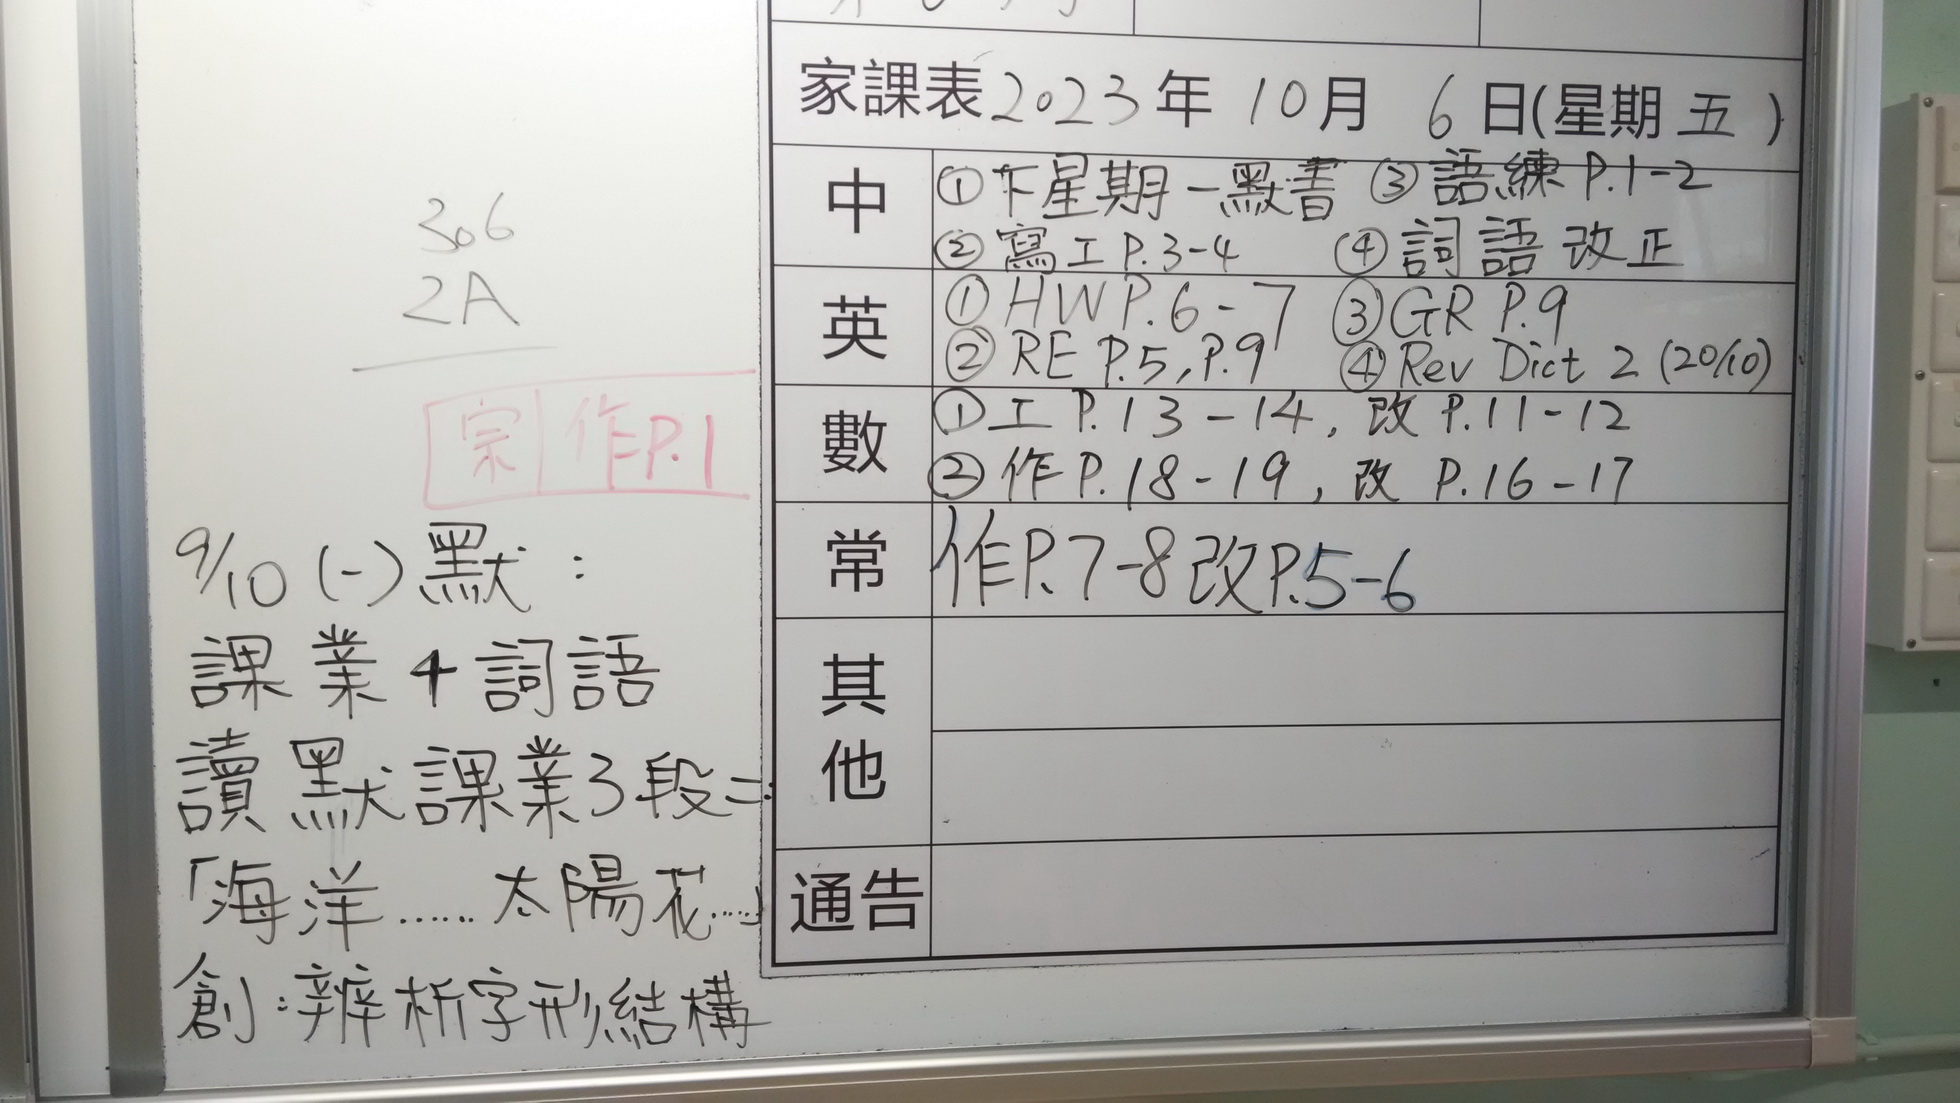 306
2A
宗 作P.1
9/10 (一) 默：
課業+詞語
讀默課業3段：
「海洋……太陽花…」
創：辨析字形結構
家課表 2023年 10月 6日(星期五)
中
①下星期一默書 ③語練 P.1-2
②寫工 P.3-4 ④詞語改正
英
①HW P.6-7 ③GR P.9
②RE P.5, P.9 ④Rev Dict 2 (20/10)
數
①工 P.13-14, 改 P.11-12
②作 P.18-19, 改 P.16-17
常
作P.7-8 改P.5-6
其他
通告